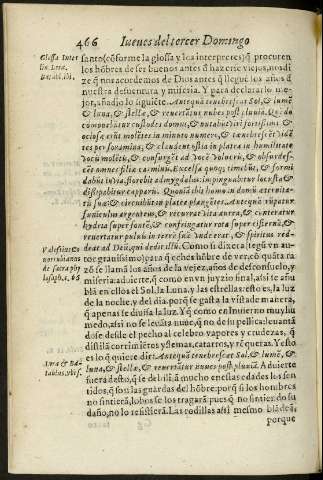 466 Iueues del tercer Domingo
Glossa Inter
lin. Lira.
Batabl. ibi.
santo (cōforme la glossa y los interpretes) q̃ procuren
los hōbres de ser buenos antes q̃ hazerse viejos, no si-
ẽpre q̃ nos acordemos de Dios antes q̃ llegue los años d̃
nuestra desuentura y miseria. Y para declararlo me-
jor, añadio lo siguiẽte. Antequã tenebrescat Sol, & lumẽ
& luna, & stellæ, & reuertãtur nubes post pluuiã. Quãdo
comouebũtur custodes domus, & nutabũt viri fortissimi, &
ociosæ erũt molẽtes in minuto numero, & tenebrescẽt vidẽ
tes per foramina, & claudent ostia in platea in humilitate
vocis molẽtis, & consurgẽt ad vocẽ volucris, & obsurdes-
cẽt omnes filiæ carminis. Excelsa quoq; timebũt, & formi
dabũt in via, florebit amygdalus, impinguabitur locusta, &
dissipabitur capparis. Quoniã ibit homo in domũ æternita-
tis suæ & circuibũt in platea plangẽtes. Antequã rũpatur
funiculus argenteus, & recurrat vitta aurea, & conteratur
hydria super fontẽ, & confringatur rota super cisternã, &
reuertatur puluis in terrã suã vnde erat, & spiritus red-
deat ad Deũ, qui dedit illũ. Como si dixera (segũ vn au-
tor grauissimo) para q̃ echés hõbre de ver, cō quãta ra
zõ se llamã los años de la vejez, años de desconsuelo, y
miseria: aduierte, q̃ como en vn juyzio final, assi se añu
blã en ellos el Sol, la Luna, y las estrellas: esto es, la luz
de la noche, y del dia, porq̃ se gasta la vista de manera,
q̃ apenas se diuisa la luz. Y q̃ como en Inuierno muy hu
medo, assi no se leuãta nuue, q̃ no de su pellisca: leuantã
dose desde el pecho al celebro vapores y crudezas, q̃
distilã corrimiẽtos y flemas, catarros, y rẽqueras. Y esto
es lo q̃ quiere dezir: Antequã tenebrescat Sol, & lumẽ, &
luna, & stellæ, & reuertãtur nubes post pluuiã. Aduierte
fuera desto, q̃ se debilitã mucho en estas edades los sen
tidos, q̃ son las guardas del hōbre, porq̃ si los hombres
no sintierã, lobos se los tragarã pues q̃ no sintiendo su
daño, no lo resistierã. Las rodillas assi mesmo blãdeã,
porque